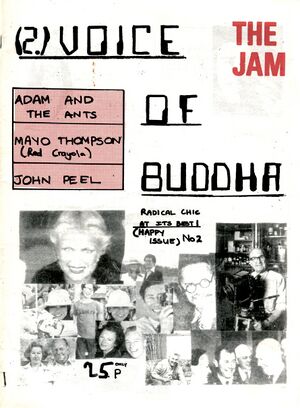 (2.) VOICE
OF
BUDDHA
THE
JAM
ADAM AND
THE ANTS
MAYO THOMPSON
(Red Crayola)
JOHN PEEL
RADICAL CHIC
AT ITS BEST!
(HAPPY
ISSUE) No2
25P ONLY